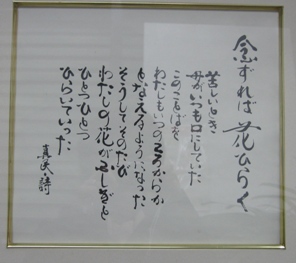 念ずれば花ひらく
苦しいとき
母がいつも口にしていた
このことばを
わたしもいつのころからか
となえるようになった
そうしてそのたび
わたしの花がふしぎと
ひとつひとつ
ひらいていった
真民詩